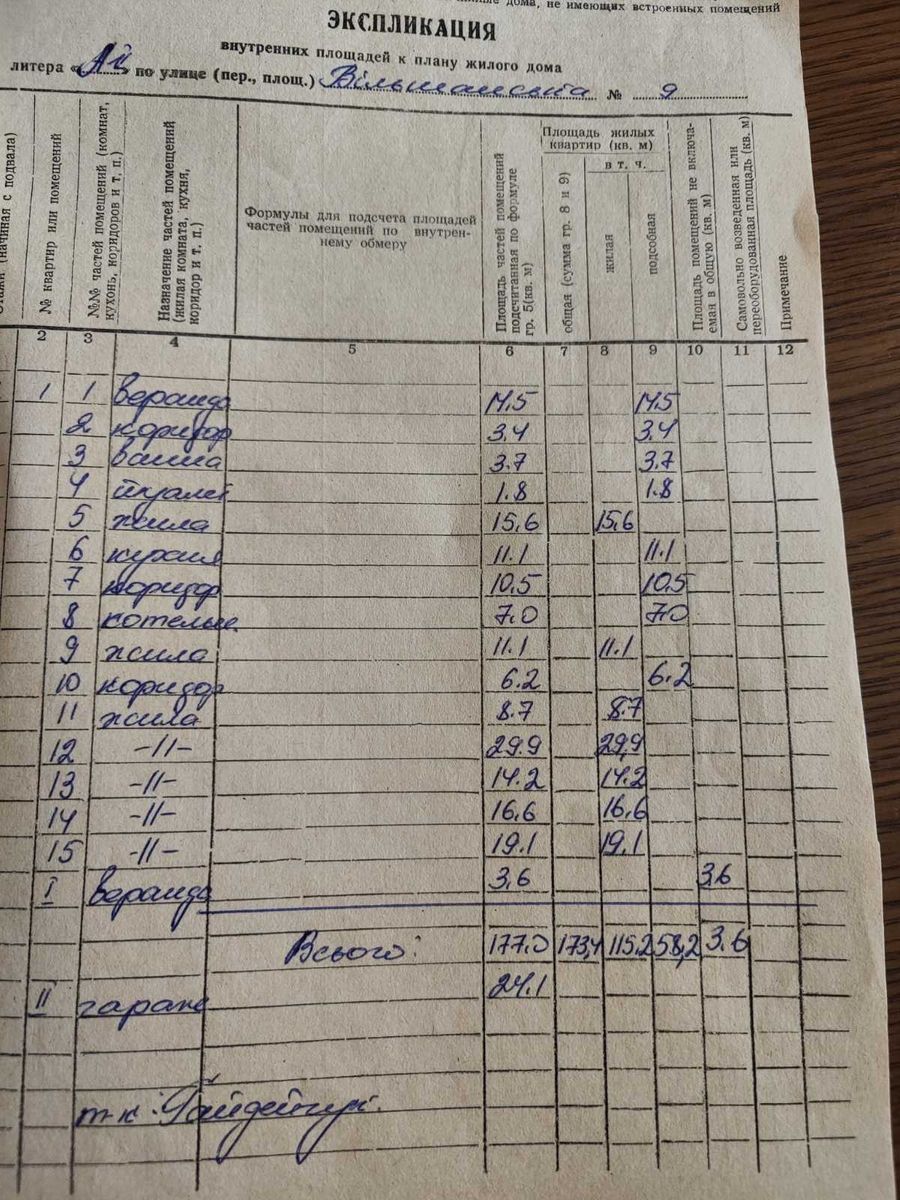 дома, не имеющих встроенных помещений
ЭКСПЛИКАЦИЯ
внутренних площадей к плану жилого дома
литера « » по улице (пер., площ.) Вільшанська № 9
(начиная с подвала)
№ квартир или помещений
№№ частей помещений (комнат, кухонь, коридоров и т. п.)
Назначение частей помещений (жилая комната, кухня, коридор и т. п.)
Формулы для подсчета площадей
частей помещений по внутрен-
нему обмеру
Площадь частей помещений подсчитанная по формуле гр. 5(кв. м)
Площадь жилых
квартир (кв. м)
общая (сумма гр. 8 и 9)
в т. ч.
жилая
подсобная
Площадь помещений не включа-емая в общую (кв. м)
Самовольно возведенная или переоборудованная площадь (кв. м)
Примечание
2 3 4 5 6 7 8 9 10 11 12
1 1 веранда 14.5 14.5
2 коридор 3.4 3.4
3 ванна 3.7 3.7
4 туалет 1.8 1.8
5 жила 15,6 15,6
6 кухня 11.1 11.1
7 коридор 10.5 10.5
8 котельн. 7.0 7.0
9 жила 11.1 11.1
10 коридор 6.2 6.2
11 жила 8.7 8.7
12 -||- 29.9 29,9
13 -||- 14.2 14.2
14 -||- 16.6 16.6
15 -||- 19.1 19.1
I веранда 3,6 3,6
Всього: 177.0 173,4 115.2 58,2 3.6
II гараж 24.1
т-к: